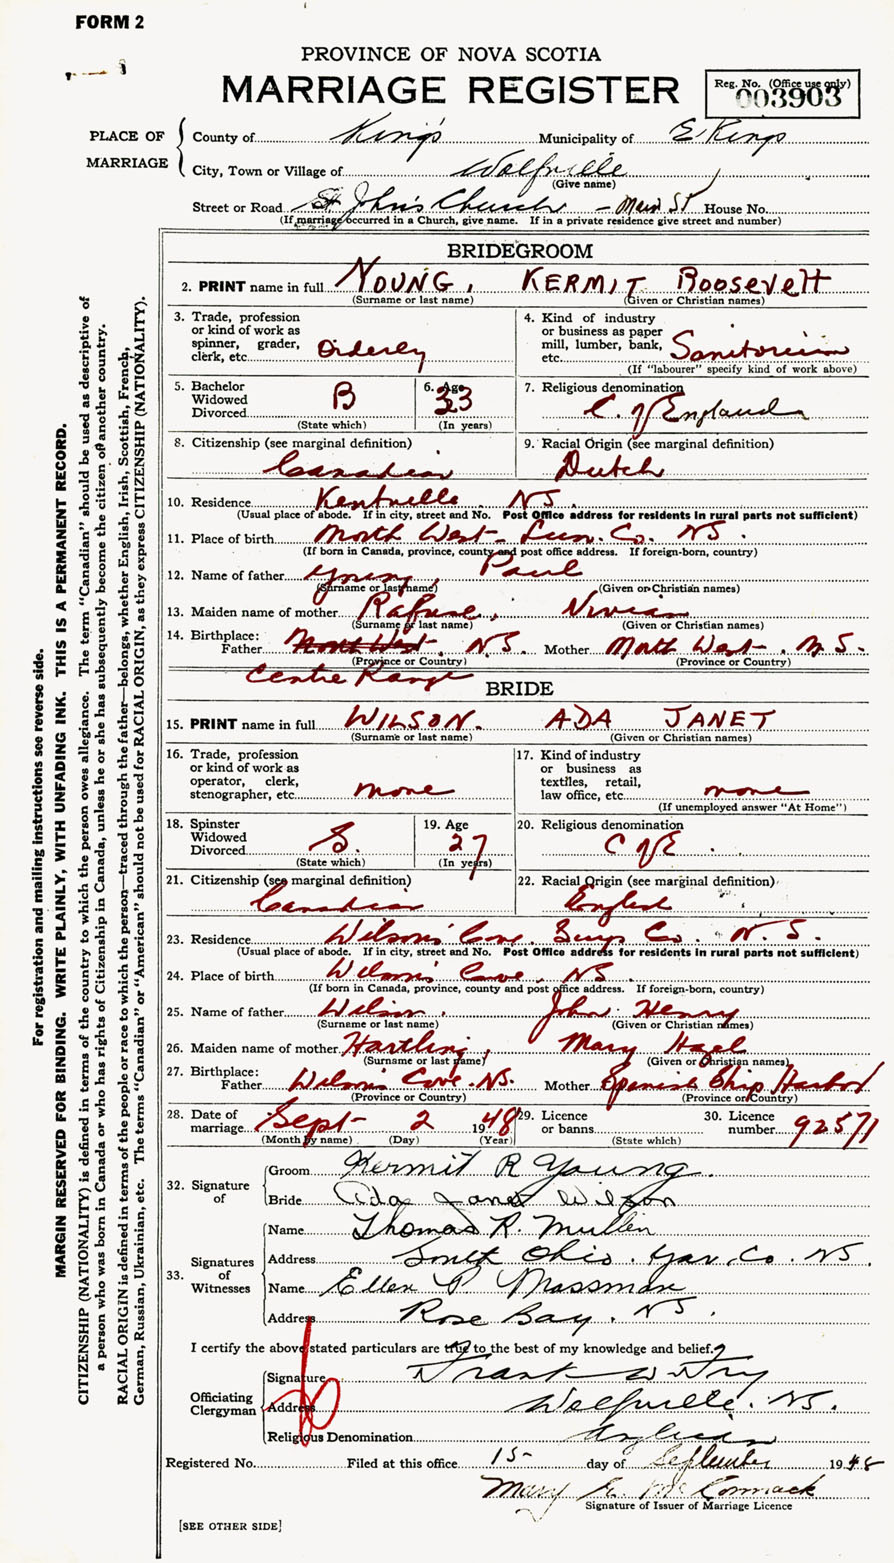 FORM 2
PROVINCE OF NOVA SCOTIA
MARRIAGE REGISTER
Reg. No. (Office use only)
003903
PLACE OF MARRIAGE
County of Kings Municipality of E Kings
City, Town or Village of Wolfville
(Give name)
Street or Road St John's Church - Main St House No.
(If marriage occurred in a Church, give name. If in a private residence give street and number)
BRIDEGROOM
2. PRINT name in full YOUNG, KERMIT ROOSEVELT
(Surname or last name) (Given or Christian names)
3. Trade, profession or kind of work as spinner, grader, clerk, etc. Orderly
4. Kind of industry or business as paper mill, lumber, bank, etc. Sanitorium
(If "labourer" specify kind of work above)
5. Bachelor Widowed Divorced B
(State which)
6. Age 33
(In years)
7. Religious denomination C. of England
8. Citizenship (see marginal definition)
Canadian
9. Racial Origin (see marginal definition)
Dutch
10. Residence Kentville NS.
(Usual place of abode. If in city, street and No. Post Office address for residents in rural parts not sufficient)
11. Place of birth North West - Lun. Co. NS.
(If born in Canada, province, county and post office address. If foreign-born, country)
12. Name of father Young, Paul
(Surname or last name) (Given or Christian names)
13. Maiden name of mother Rafuse, Vivian
(Surname or last name) (Given or Christian names)
14. Birthplace: Father North West, N.S. Mother North West, N.S.
(Province or Country) (Province or Country)
Centre Range
BRIDE
15. PRINT name in full WILSON. ADA JANET
(Surname or last name) (Given or Christian names)
16. Trade, profession or kind of work as operator, clerk, stenographer, etc. none
17. Kind of industry or business as textiles, retail, law office, etc. none
(If unemployed answer "At Home")
18. Spinster Widowed Divorced S.
(State which)
19. Age 27
(In years)
20. Religious denomination C of E.
21. Citizenship (see marginal definition)
Canadian
22. Racial Origin (see marginal definition)
English
23. Residence Wilson's Cove, Co. N.S.
(Usual place of abode. If in city, street and No. Post Office address for residents in rural parts not sufficient)
24. Place of birth Wilson's Cove, NS.
(If born in Canada, province, county and post office address. If foreign-born, country)
25. Name of father Wilson, John Henry
(Surname or last name) (Given or Christian names)
26. Maiden name of mother Hartling, Mary Hazel
(Surname or last name) (Given or Christian names)
27. Birthplace: Father Wilson's Cove. NS. Mother Spanish Ship Harbor
(Province or Country) (Province or Country)
28. Date of marriage Sept 2 1948
(Month by name) (Day) (Year)
29. Licence or banns
(State which)
30. Licence number 92571
32. Signature of
Groom Kermit R Young
Bride Ada Janet Wilson
33. Signatures of Witnesses
Name Thomas R. Mullen
Address South Ohio. Yar. Co. NS
Name Ellen P. Mossman
Address Rose Bay. NS.
I certify the above stated particulars are true to the best of my knowledge and belief.
Officiating Clergyman
Signature Frank W
Address Wolfville. NS.
Religious Denomination Anglican
Registered No. Filed at this office 15 day of September 1948
Mary McCormack
Signature of Issuer of Marriage Licence
[SEE OTHER SIDE]
For registration and mailing instructions see reverse side.
MARGIN RESERVED FOR BINDING. WRITE PLAINLY, WITH UNFADING INK. THIS IS A PERMANENT RECORD.
CITIZENSHIP (NATIONALITY) is defined in terms of the country to which the person owes allegiance. The term "Canadian" should be used as descriptive of
a person who was born in Canada or who has rights of Citizenship in Canada, unless he or she has subsequently become the citizen of another country.
RACIAL ORIGIN is defined in terms of the people or race to which the person—traced through the father—belongs, whether English, Irish, Scottish, French,
German, Russian, Ukrainian, etc. The terms "Canadian" or "American" should not be used for RACIAL ORIGIN, as they express CITIZENSHIP (NATIONALITY).